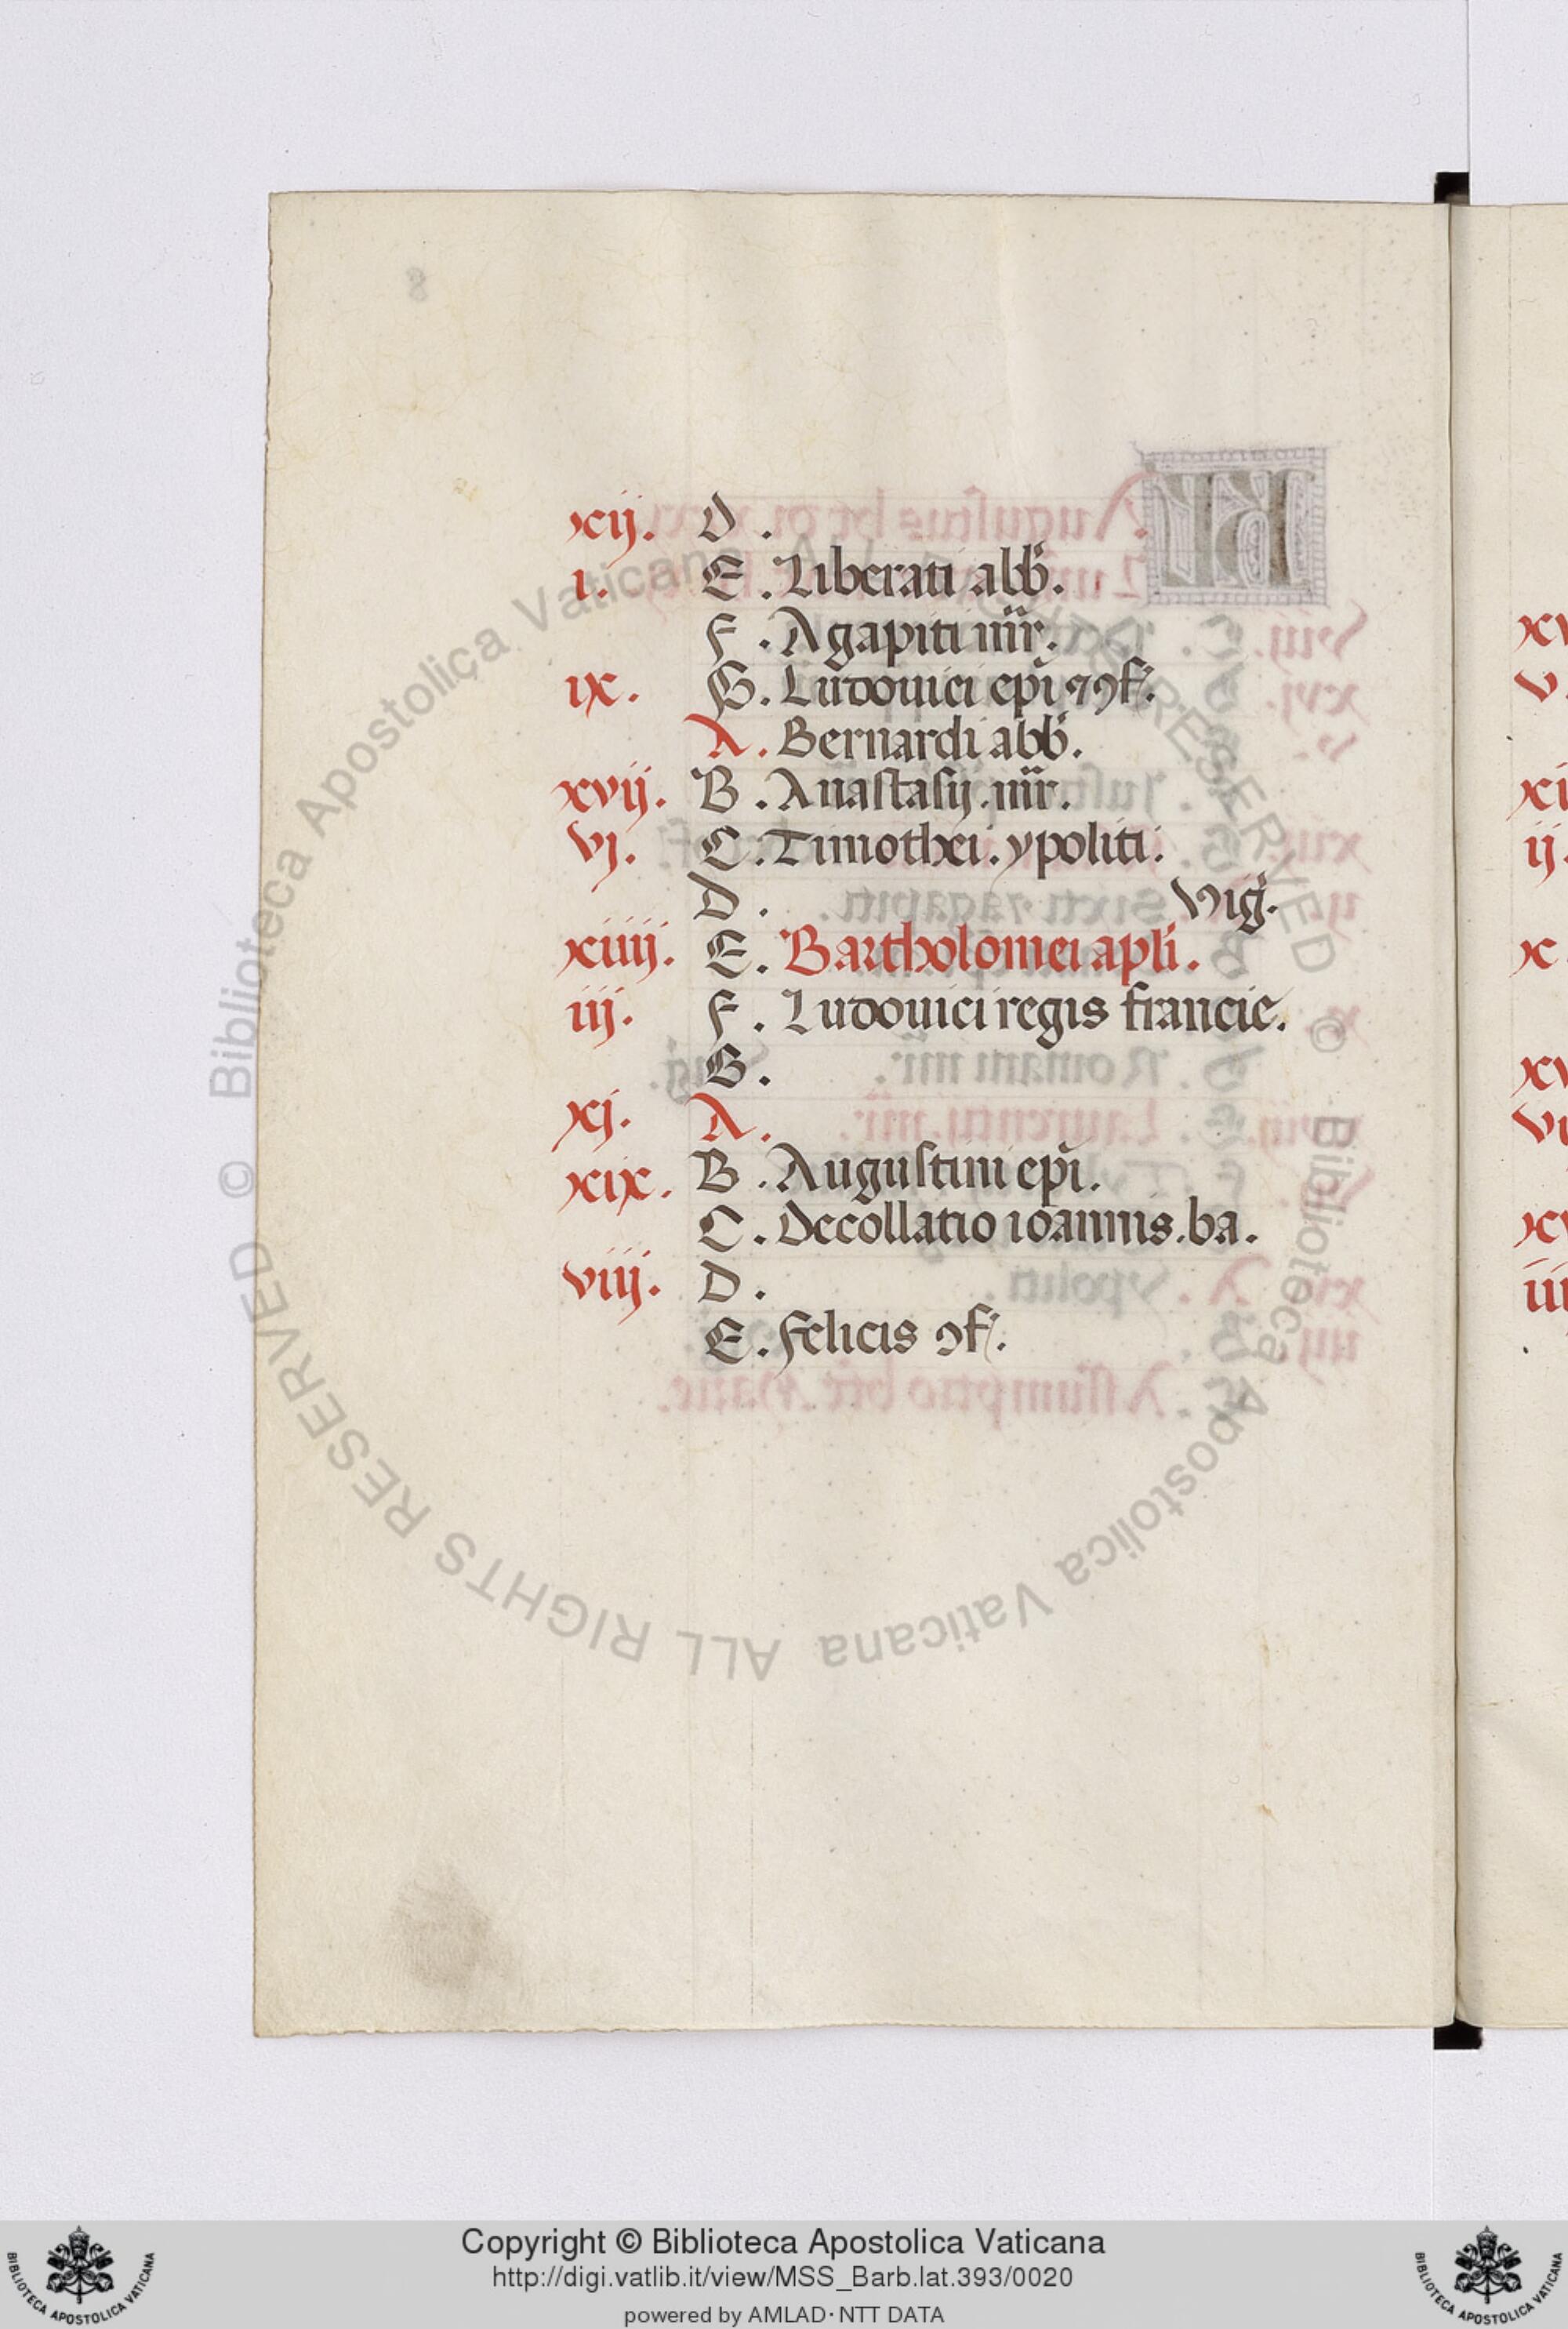 xij. D.
i. E. Liberati abb̄.
F. Agapiti m̄r.
ix. G. Ludouici ep̄i ⁊ ꝯf.
A. Bernardi abb̄.
xvij. B. Anastasij. m̄r.
vj. C. Timothei. ypoliti.
D. Viḡ.
xiiij. E. Bartholomei apl̄i.
iij. F. Ludouici regis francie.
G.
xj. A.
xix. B. Augustini ep̄i.
C. Decollatio ioannis. ba.
viij. D.
E. Felicis ꝯf.
Copyright © Biblioteca Apostolica Vaticana
http://digi.vatlib.it/view/MSS_Barb.lat.393/0020
powered by AMLAD · NTT DATA
© Biblioteca Apostolica Vaticana ALL RIGHTS RESERVED
© Biblioteca Apostolica Vaticana ALL RIGHTS RESERVED
BIBLIOTECA APOSTOLICA VATICANA
BIBLIOTECA APOSTOLICA VATICANA